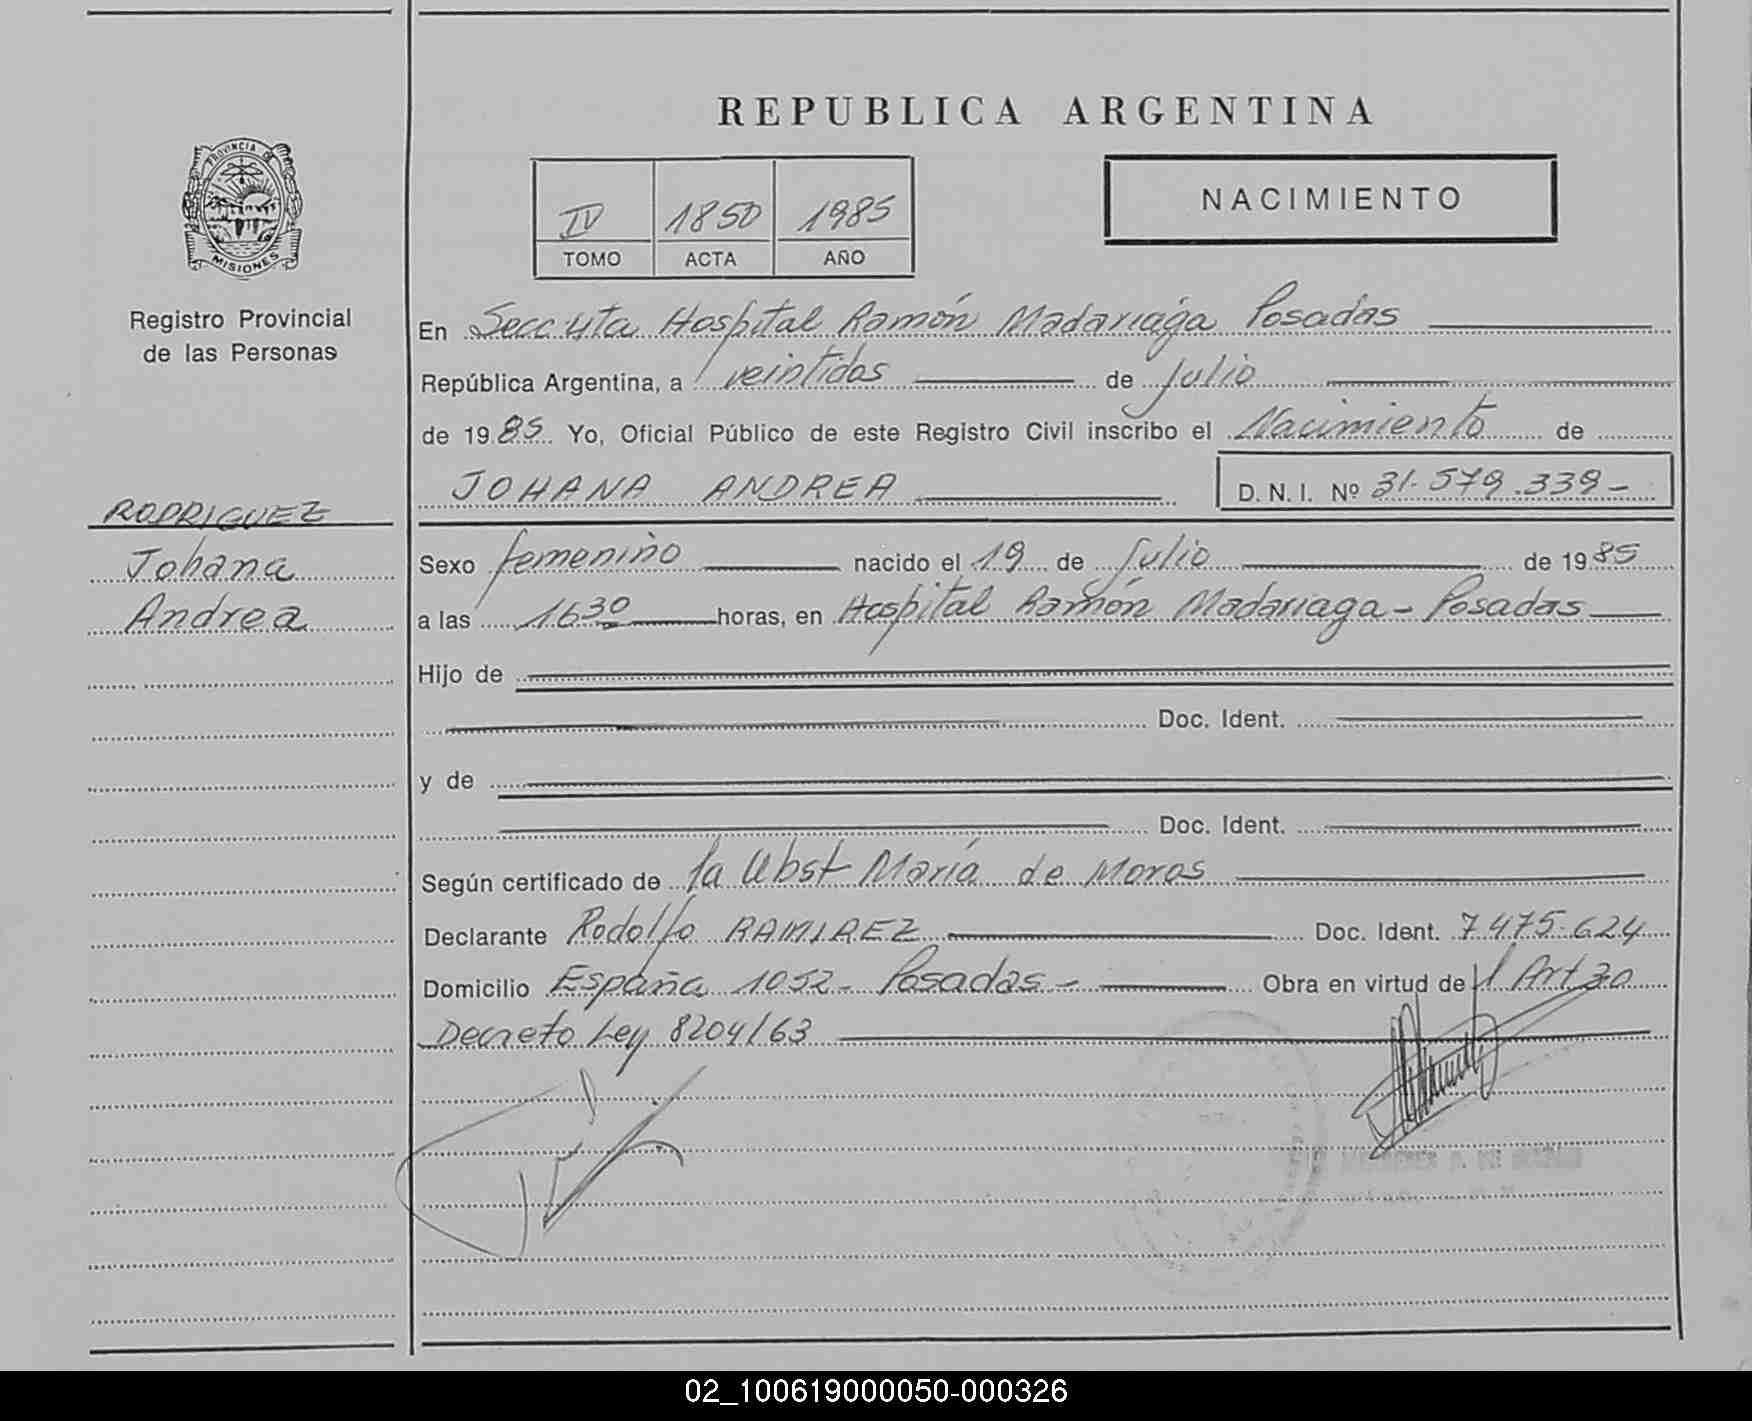 REPUBLICA ARGENTINA
PROVINCIA DE
MISIONES
Registro Provincial
de las Personas
IV 1850 1985
TOMO ACTA AÑO
NACIMIENTO
En Secc 4ta Hospital Ramón Madariaga Posadas
República Argentina, a veintidos de Julio
de 1985 Yo, Oficial Público de este Registro Civil inscribo el Nacimiento de
JOHANA ANDREA D.N.I. Nº 31.579.339-
RODRIGUEZ
Johana
Andrea
Sexo femenino nacido el 19 de Julio de 1985
a las 16 30 horas, en Hospital Ramón Madariaga - Posadas
Hijo de
Doc. Ident.
y de
Doc. Ident.
Según certificado de la Obst María de Moras
Declarante Rodolfo RAMIREZ Doc. Ident. 7475.624
Domicilio España 1052 - Posadas - Obra en virtud del Art 30
Decreto Ley 8204/63
02_100619000050-000326